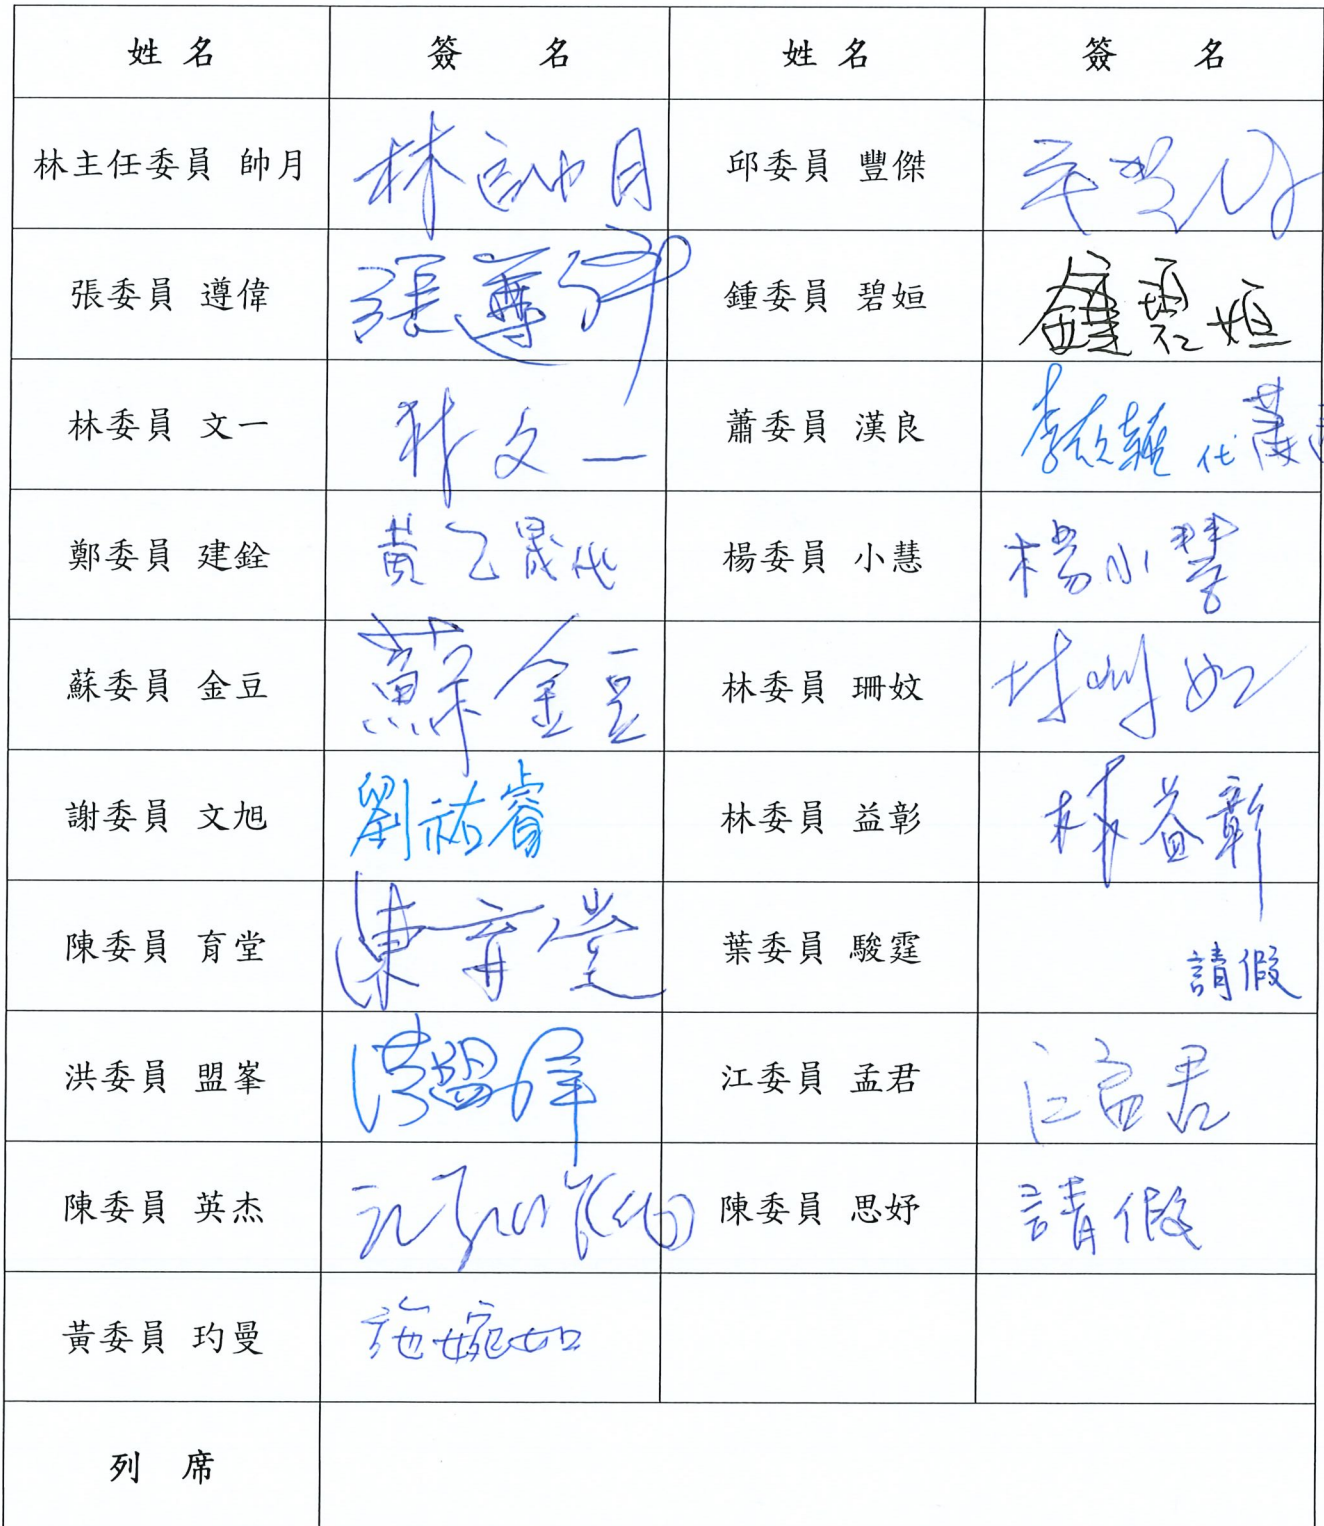 姓名 簽名 姓名 簽名
林主任委員 帥月 林帥月 邱委員 豐傑
張委員 遵偉 張遵偉 鍾委員 碧姮 鍾碧姮
林委員 文一 林文一 蕭委員 漢良 代蕭
鄭委員 建銓 黃乙晟代 楊委員 小慧 楊小慧
蘇委員 金豆 蘇金豆 林委員 珊妏
謝委員 文旭 劉祐睿 林委員 益彰 林益彰
陳委員 育堂 陳育堂 葉委員 駿霆 請假
洪委員 盟峯 洪盟峯 江委員 孟君 江孟君
陳委員 英杰 (代) 陳委員 思妤 請假
黃委員 玓曼 施婉如
列席